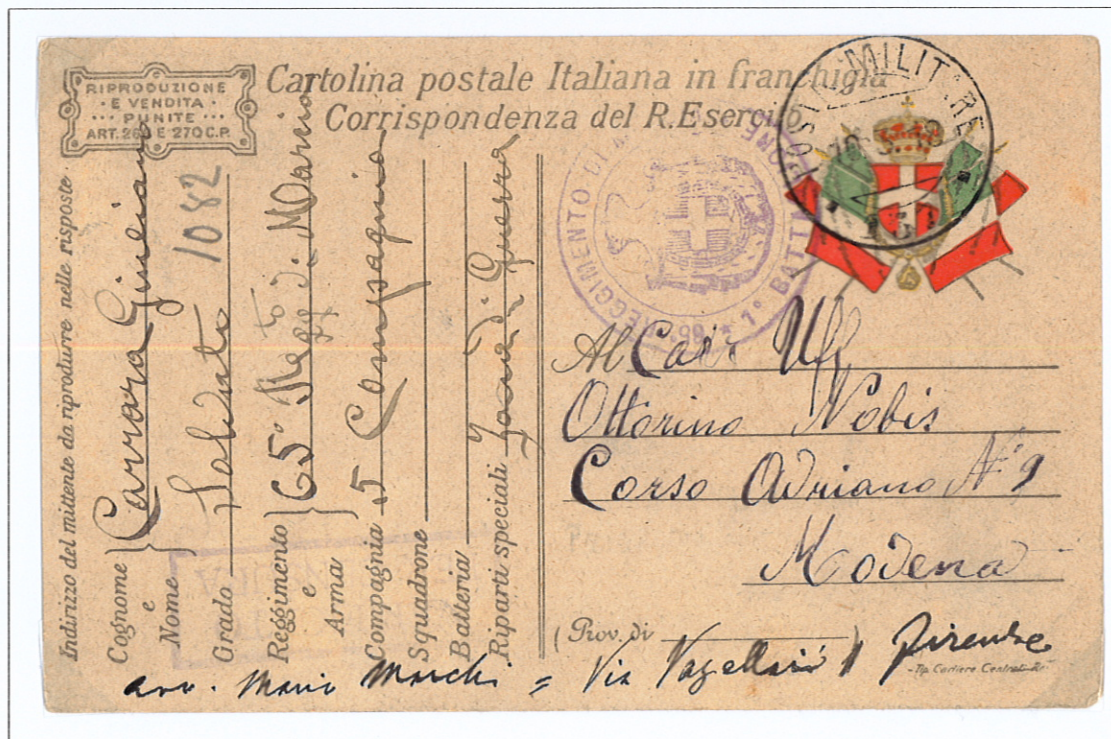 RIPRODUZIONE
· E VENDITA ·
··· PUNITE ···
ART. 269 E 270 C.P.
Cartolina postale Italiana in franchigia
Corrispondenza del R. Esercito
POSTA MILITARE
REGGIMENTO DI
1° BATT
Indirizzo del mittente da riprodurre nelle risposte
Cognome e Nome Carrara Giuliano
1082
Grado Soldato
Reggimento e Arma 65° Regg to di Marcia
Compagnia 5 Compagnia
Squadrone
Batteria
Riparti speciali Zona di Guerra
Al Cav. Uff
Ottorino Nobis
Corso Adriano N° 9
Modena
(Prov. di )
avv. Mario Marchi = Via Vagellai 1 Firenze